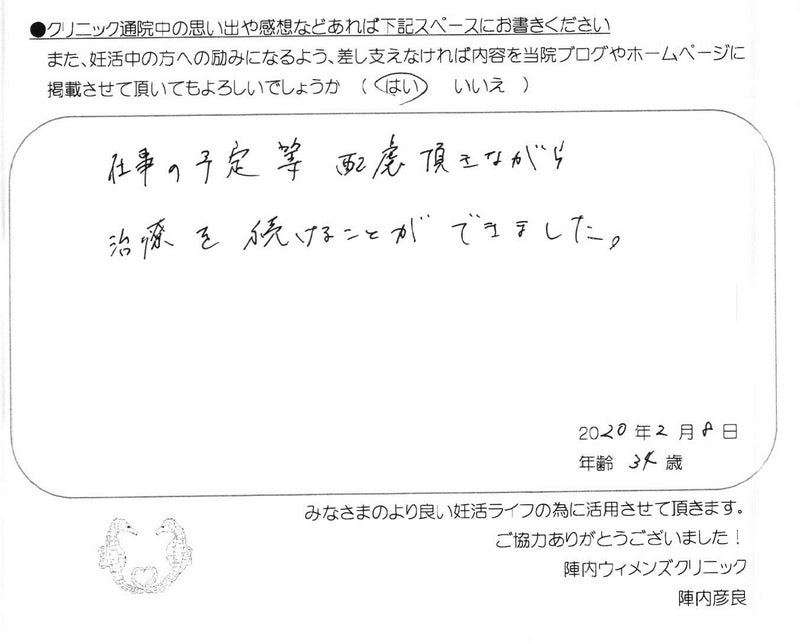 ●クリニック通院中の思い出や感想などあれば下記スペースにお書きください
また、妊活中の方への励みになるよう、差し支えなければ内容を当院ブログやホームページに
掲載させて頂いてもよろしいでしょうか （ はい いいえ ）
仕事の予定等 配慮頂きながら
治療を続けることができました。
2020年2月8日
年齢 34歳
みなさまのより良い妊活ライフの為に活用させて頂きます。
ご協力ありがとうございました！
陣内ウィメンズクリニック
陣内彦良